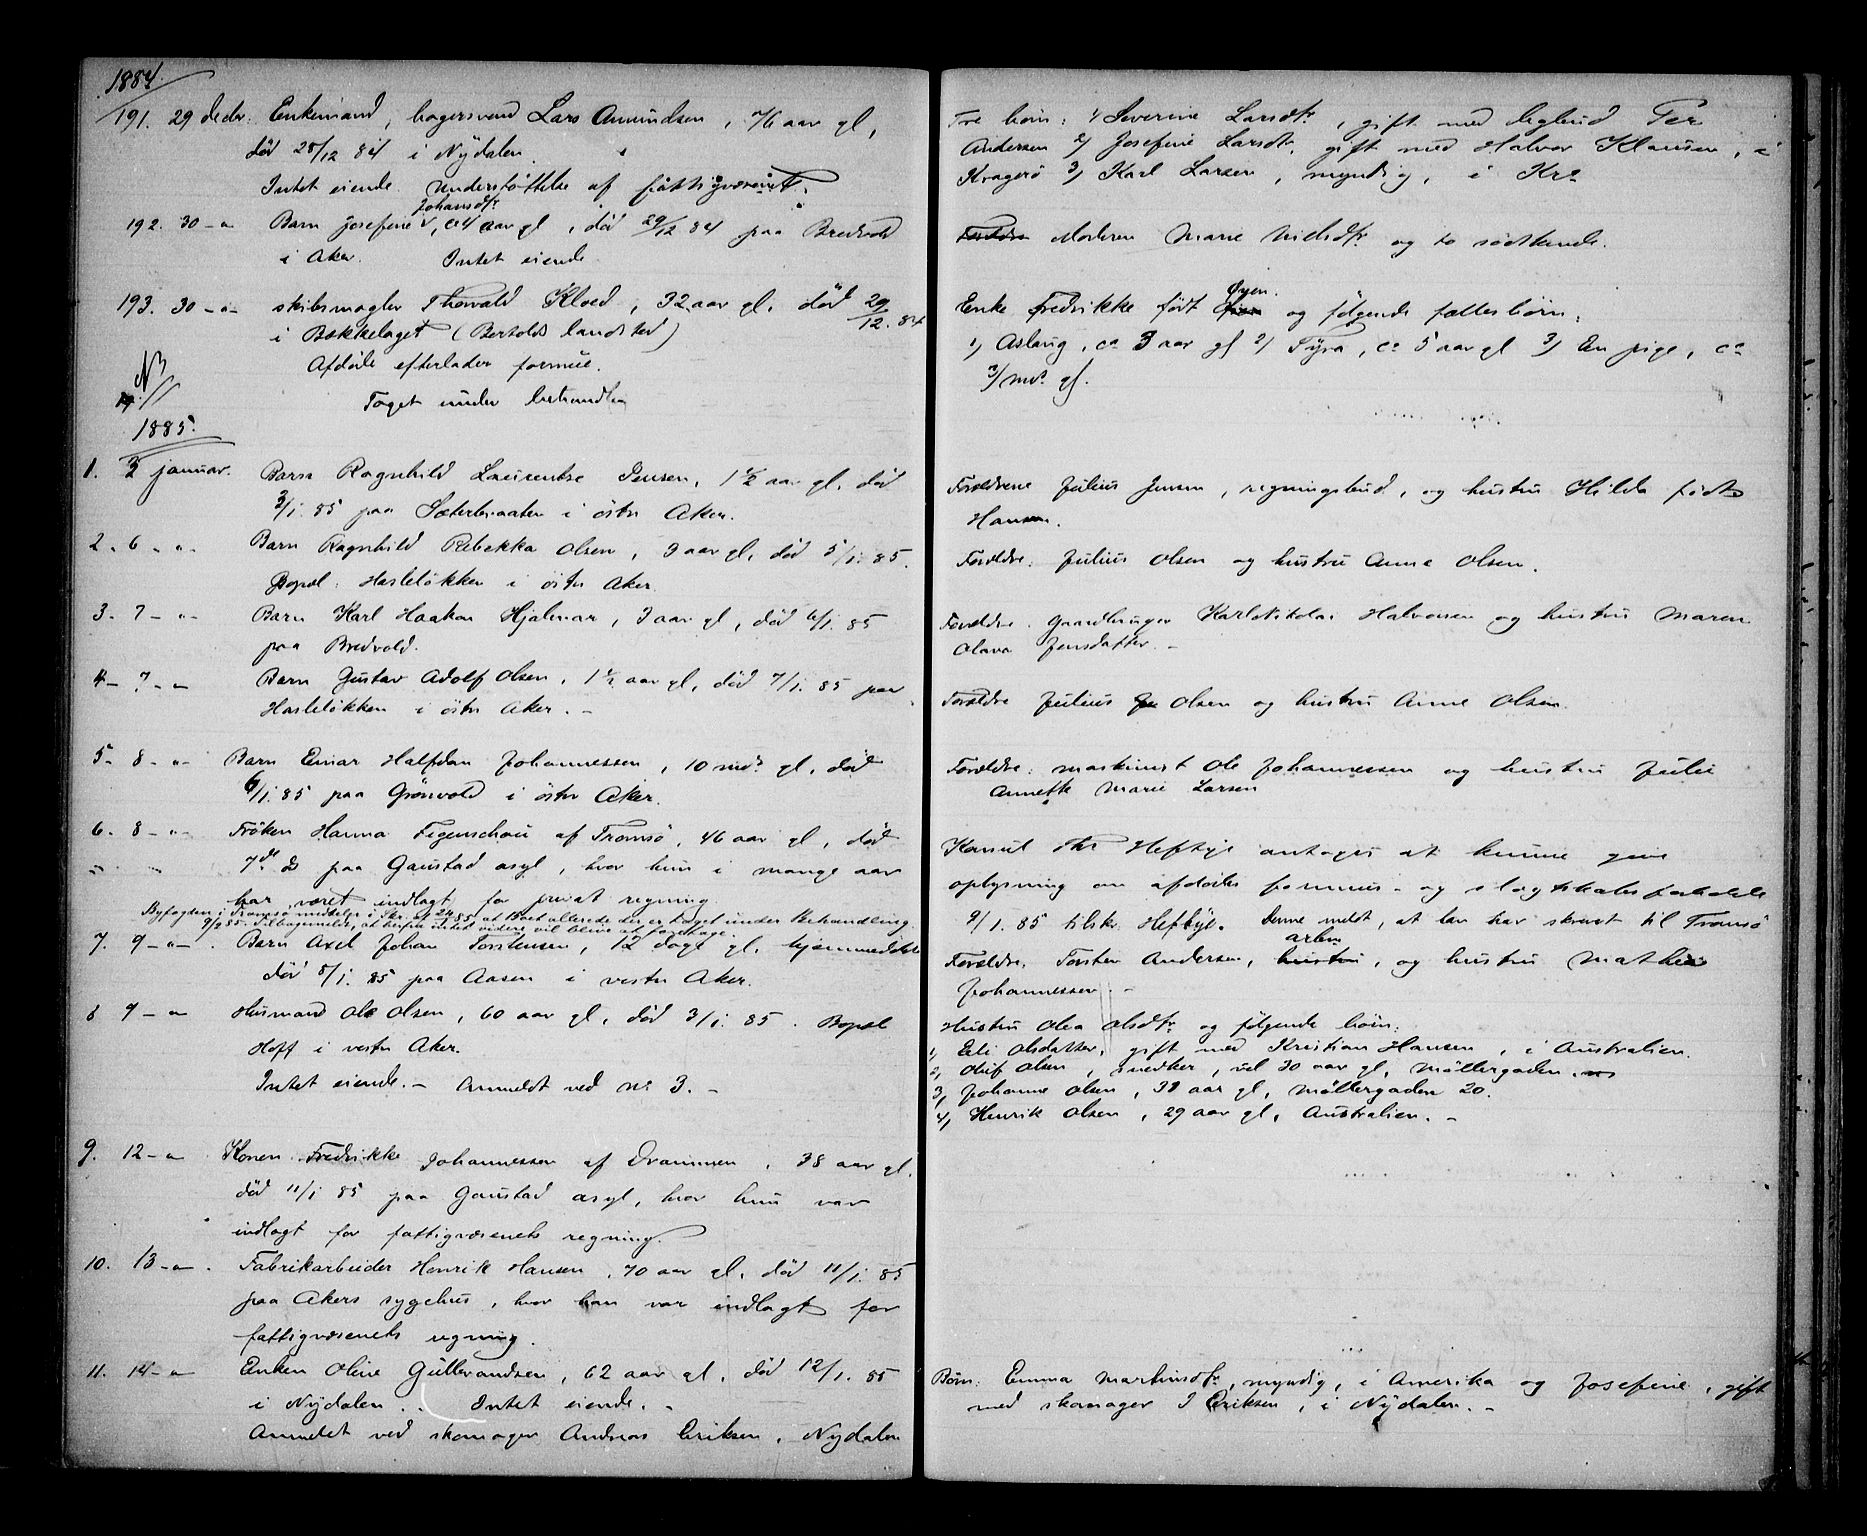 1884.
191. 29 decbr. Enkemand, bagersvend Lars Amundsen, 76 aar gl,
død 28/12 84 i Nydalen.
Intet eiende. Understøttelse af fattigvæsenet.
Johansdtr
192. 30 - " - Barn Josefine, ca 4 aar gl, død 29/12 84 paa Bredvold
i Aker. Intet eiende.
193. 30 - " - skibsmægler Thorvald Kloed, 32 aar gl, død 29/12. 84
i Bækkelaget (Bertolds landsted)
Afdøde efterlader formue.
Taget under behandling
1885.
1. 3 januar. Barn Ragnhild Laurentze Jensen, 1 1/2 aar gl, død
3/1. 85 paa Sæterbraaten i østre Aker.
2. 6 - " - Barn Ragnhild Rebekka Olsen, 3 aar gl, død 5/1. 85.
Bopæl: Hasleløkken i østre Aker.
3. 7 - " - Barn Karl Haakon Hjalmar, 3 aar gl, død 6/1. 85
paa Bredvold.
4 - 7 - " - Barn Gustav Adolf Olsen, 1 1/2 aar gl, død 7/1. 85 paa
Hasleløkken i østre Aker. -
5 - 8 - " - Barn Einar Halfdan Johannessen, 10 mdr gl, død
6/1. 85 paa Grønvold i østre Aker.
6. 8 - " - Frøken Hanna Figenschou af Tromsø, 46 aar gl, død
7de ds paa Gaustad asyl, hvor hun i mange aar
har været indlagt for privat regning.
Byfogden i Tromsø meddeler i Skr. af 24/1 85, at Boet allerede der er taget under Behandling.
9/2 85. Tilbagemeldt, at herfra intet videre vil blive at foretage.
7. 9 - " - Barn Axel Johan Torstensen, 12 dage gl, hjemmedøbt
død 8/1. 85 paa Aasen i vestre Aker.
8 9 - " - Husmand Ole Olsen, 60 aar gl, død 3/1. 85. Bopæl
Hoff i vestre Aker.
Intet eiende. - Anmeldt ved nr 3. -
9. 12 - " - Konen Fredrikke Johannessen af Drammen, 38 aar gl.
død 11/1 85 paa Gaustad asyl, hvor hun var
indlagt for fattigvæsenets regning.
10. 13 - " - Fabrikarbeider Henrik Hansen, 70 aar gl, død 11/1. 85
paa Akers sygehus, hvor han var indlagt for
fattigvæsenets regning.
11. 14 - " - Enken Oline Gulbrandsen, 62 aar gl, død 12/1. 85
i Nydalen. Intet eiende. -
Anmeldt ved skomager Andreas Eriksen, Nydalen
Tre børn: 1/ Severine Larsdtr, gift med Per
Andersen 2/ Josefine Larsdtr, gift med Halvor Klausen, i
Kragerø 3/ Karl Larsen, myndig, i Kra
Forældre Moderen Marie Nielsdtr og to sødskende.
Øyen.
Enke Fredrikke født og følgende fællesbørn:
1/ Aslaug, ca 3 aar gl 2/ Tyra, ca 5 aar gl 3/ En pige, ca
3/ mdr gl.
Forældrene Julius Jensen, regningsbud, og hustru Hilda født
Hansen.
Forældre: Julius Olsen og hustru Anne Olsen.
Forældre: Gaardbruger Karl Nikolai Halvorsen og hustru Maren
Olava Jensdatter. -
Forældre Julius Olsen og hustru Anne Olsen
Forældre: maskinist Ole Johannessen og hustru Julie
Annette Marie Larsen
Konsul Thr Heftye antages at kunne give
oplysning om afdødes formues- og slægtskabsforholde
9/1. 85 tilskr. Heftye. Denne meldt, at han har skrevet til Tromsø
arbm
Forældre: Torsten Andersen, hustru, og hustru Mathea
Johannessen. -
Hustru Olea Olsdtr og følgende børn:
1, Eli Olsdatter, gift med Kristian Hansen, i Australien.
2, Oluf Olsen, snedker, vel 30 aar gl, Møllergaden.
3, Johanne Olsen, 38 aar gl, Møllergaden 20.
4, Henrik Olsen, 29 aar gl, Australien. -
Børn: Emma Martinsdtr, myndig, i Amerika og Josefine, gift
med skomager J Eriksen, i Nydalen. -